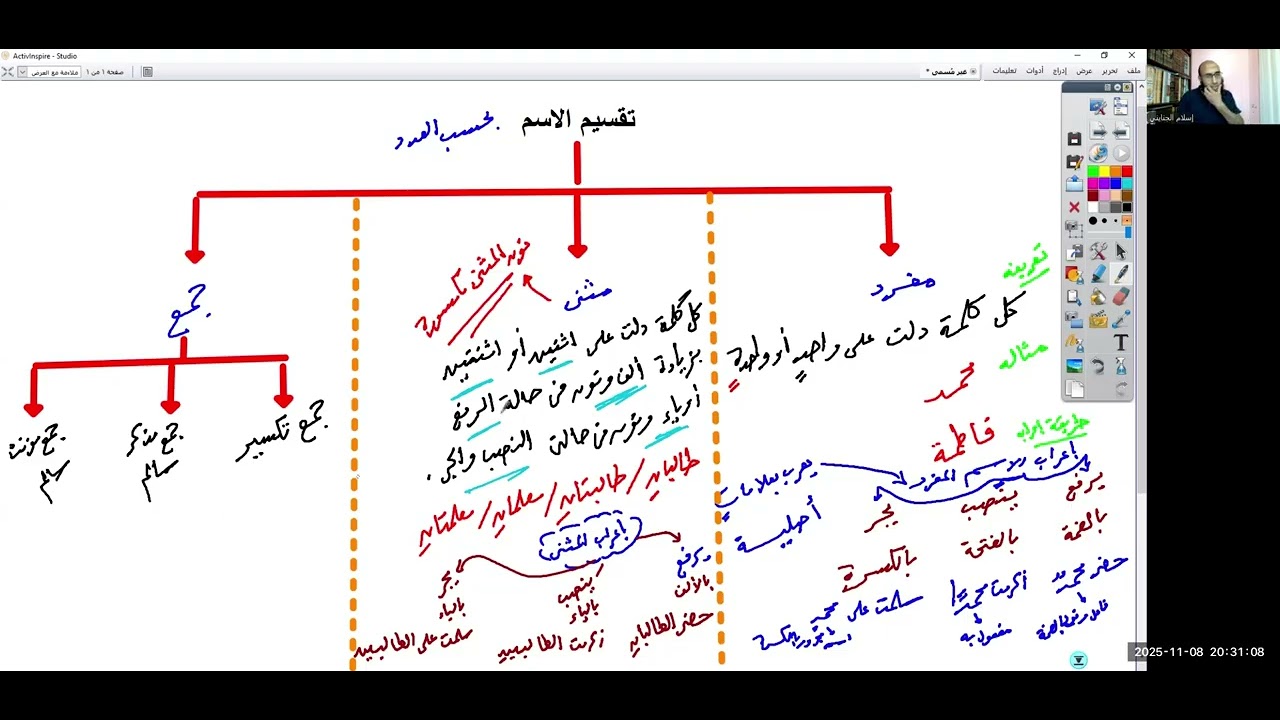 ActivInspire - Studio
ملف تحرير عرض إدراج أدوات تعليمات
غير مُسمى *
صفحة ١ من ١
ملاءمة مع العرض
إسلام الجنايني
تقسيم الاسم بحسب العدد
مفرد
تعريفه
كل كلمة دلت على واحدٍ أو واحدةٍ
مثاله
محمد
فاطمة
طريقة إعرابه
إعراب الاسم المفرد
يعرب بعلاماتٍ
أصلية
يرفع ينصب يجر
بالضمة بالفتحة بالكسرة
حضر محمدٌ أكرمت محمدًا سلمت على محمدٍ
فاعل مرفوع بالضمة
مفعول به
اسم مجرور بالكسرة
مثنى
نون المثنى مكسورة
كل كلمة دلت على اثنين أو اثنتين
بزيادة ألف ونون في حالة الرفع
أو ياء ونون في حالة النصب والجر.
طالبان / طالبتان / معلمان / معلمتان
إعراب المثنى
يرفع ينصب يجر
بالألف بالياء بالياء
حضر الطالبان أكرمت الطالبين سلمت على الطالبين
جمع
جمع تكسير
جمع مذكر سالم
جمع مؤنث سالم
2025-11-08 20:31:08